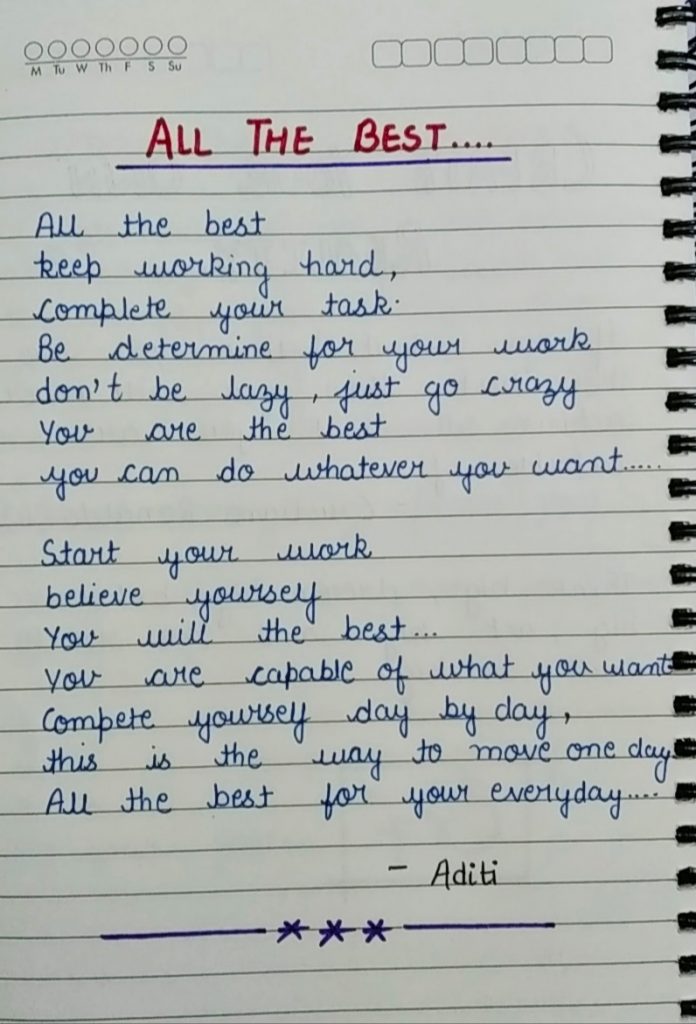 M Tu W Th F S Su
ALL THE BEST....
All the best
keep working hard,
complete your task.
Be determine for your work
don't be lazy, just go crazy
You are the best
you can do whatever you want.....
Start your work
believe yourself
You will the best...
You are capable of what you want
Compete yourself day by day,
this is the way to move one day
All the best for your everyday....
- Aditi